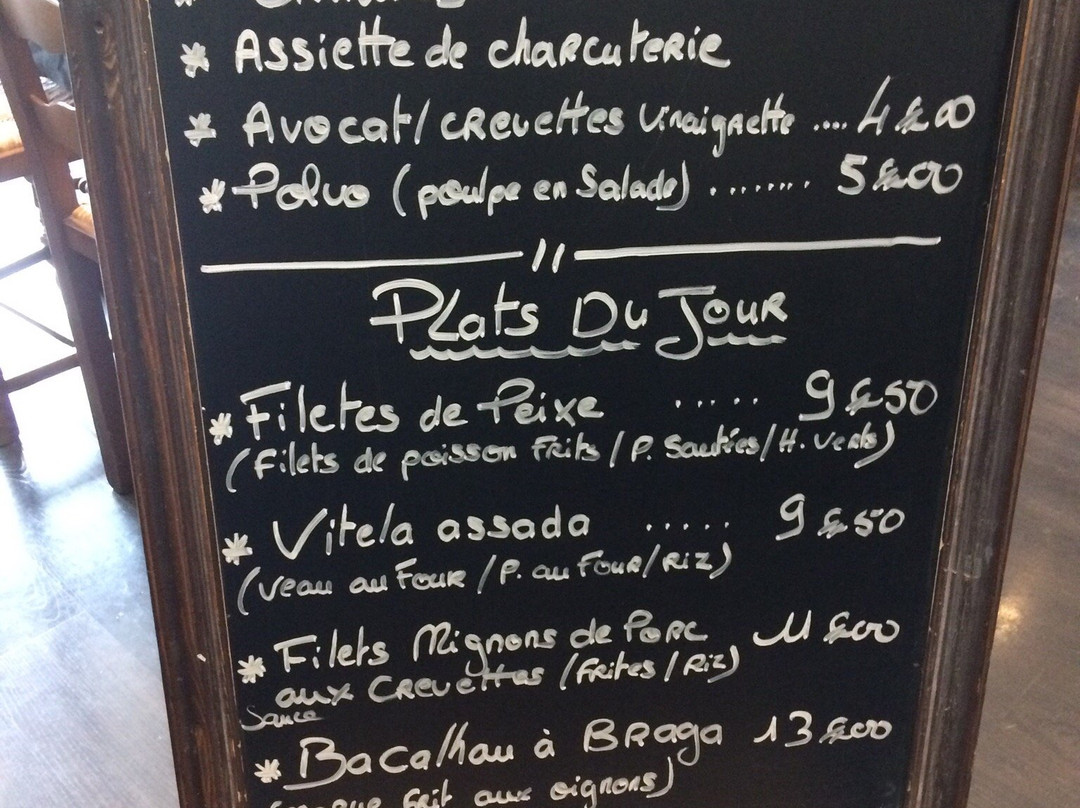 * Assiette de charcuterie
* Avocat/crevettes vinaigrette .... 4€00
* Polvo (poulpe en salade) ........ 5€00
Plats Du Jour
* Filetes de Peixe ..... 9€50
(Filets de poisson frits / P. Sautées / H. Verts)
* Vitela assada ..... 9€50
(Veau au Four / P. au Four / Riz)
* Filets Mignons de Porc 11€00
aux Crevettes (Frites / Riz)
Sauce
* Bacalhau à Braga 13€00
frit aux oignons)